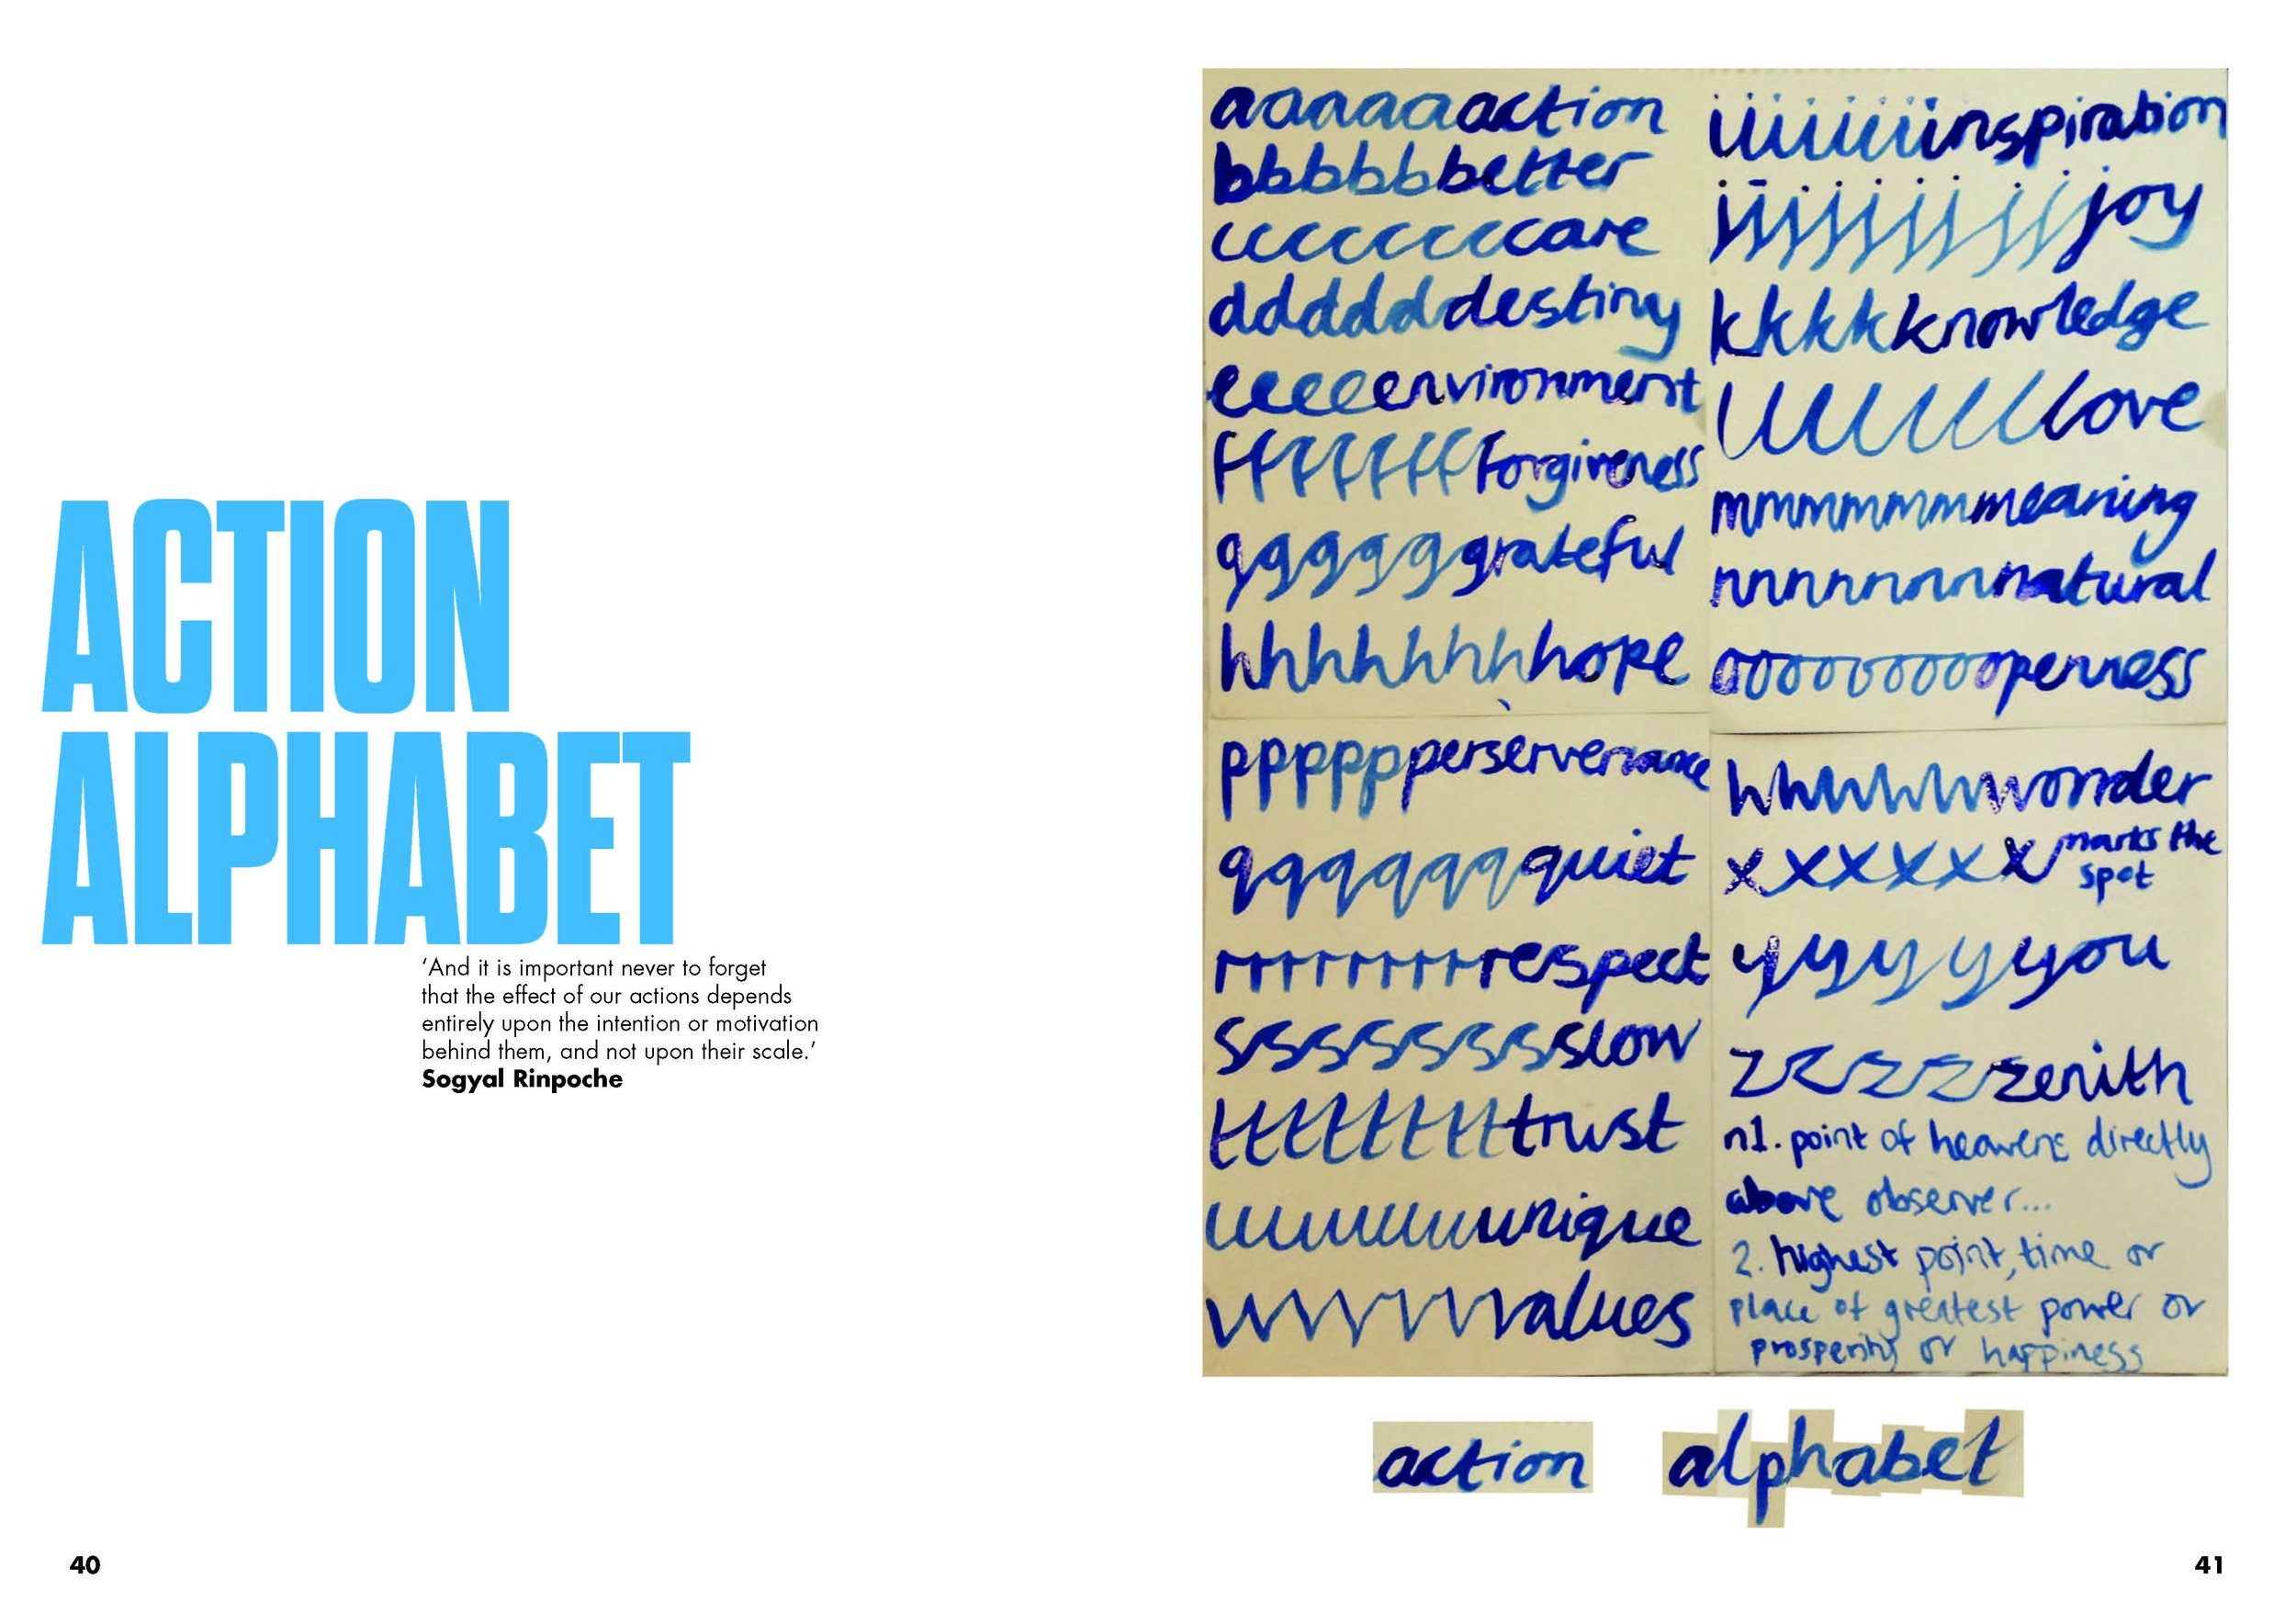 ACTION
ALPHABET
‘And it is important never to forget
that the effect of our actions depends
entirely upon the intention or motivation
behind them, and not upon their scale.’
Sogyal Rinpoche
40
aaaaaaaction
bbbbbbetter
ccccccccare
ddddddestiny
eeeeenvironment
ffffffffforgiveness
gggggggrateful
hhhhhhhhope
iiiiiiiinspiration
jjjjjjjjjjoy
kkkkknowledge
lllllllllove
mmmmmmmeaning
nnnnnnnnatural
oooooooooopenness
ppppppperserverance
qqqqqqqquiet
rrrrrrrrrespect
sssssssslow
ttttttttttrust
uuuuuuunique
vvvvvvvalues
wwwwwwonder
xxxxxxx marks the
spot
yyyyyyou
zzzzzenith
n1. point of heavens directly
above observer...
2. highest point, time or
place of greatest power or
prosperity or happiness
action alphabet
41